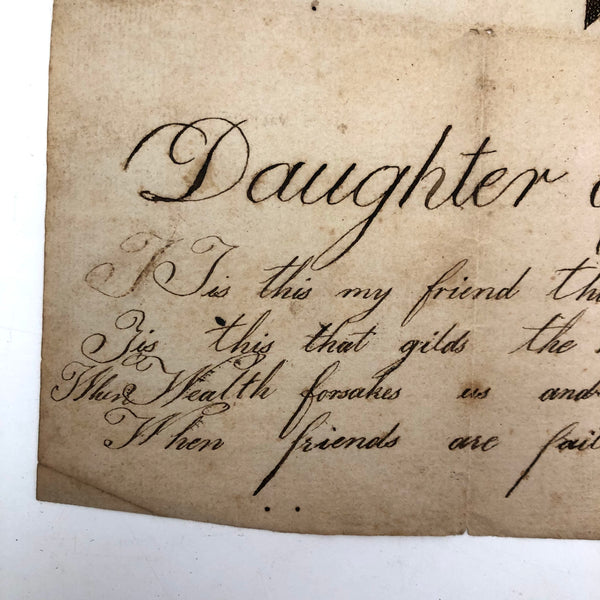 Daughter
Tis this my friend th
Tis this that gilds the
When Wealth forsakes us and
When friends are fail